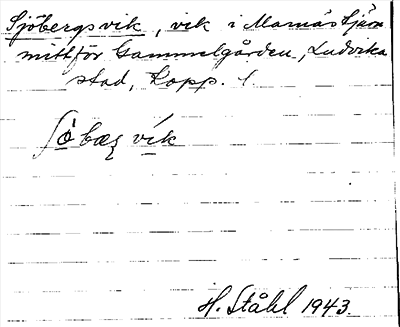 Sjöbergsvik, vik i Marnästjärn
mittför Gammelgården, Ludvika
stad, Kopp. l.
ʃö̀bæʒ vík
H. Ståhl 1943.